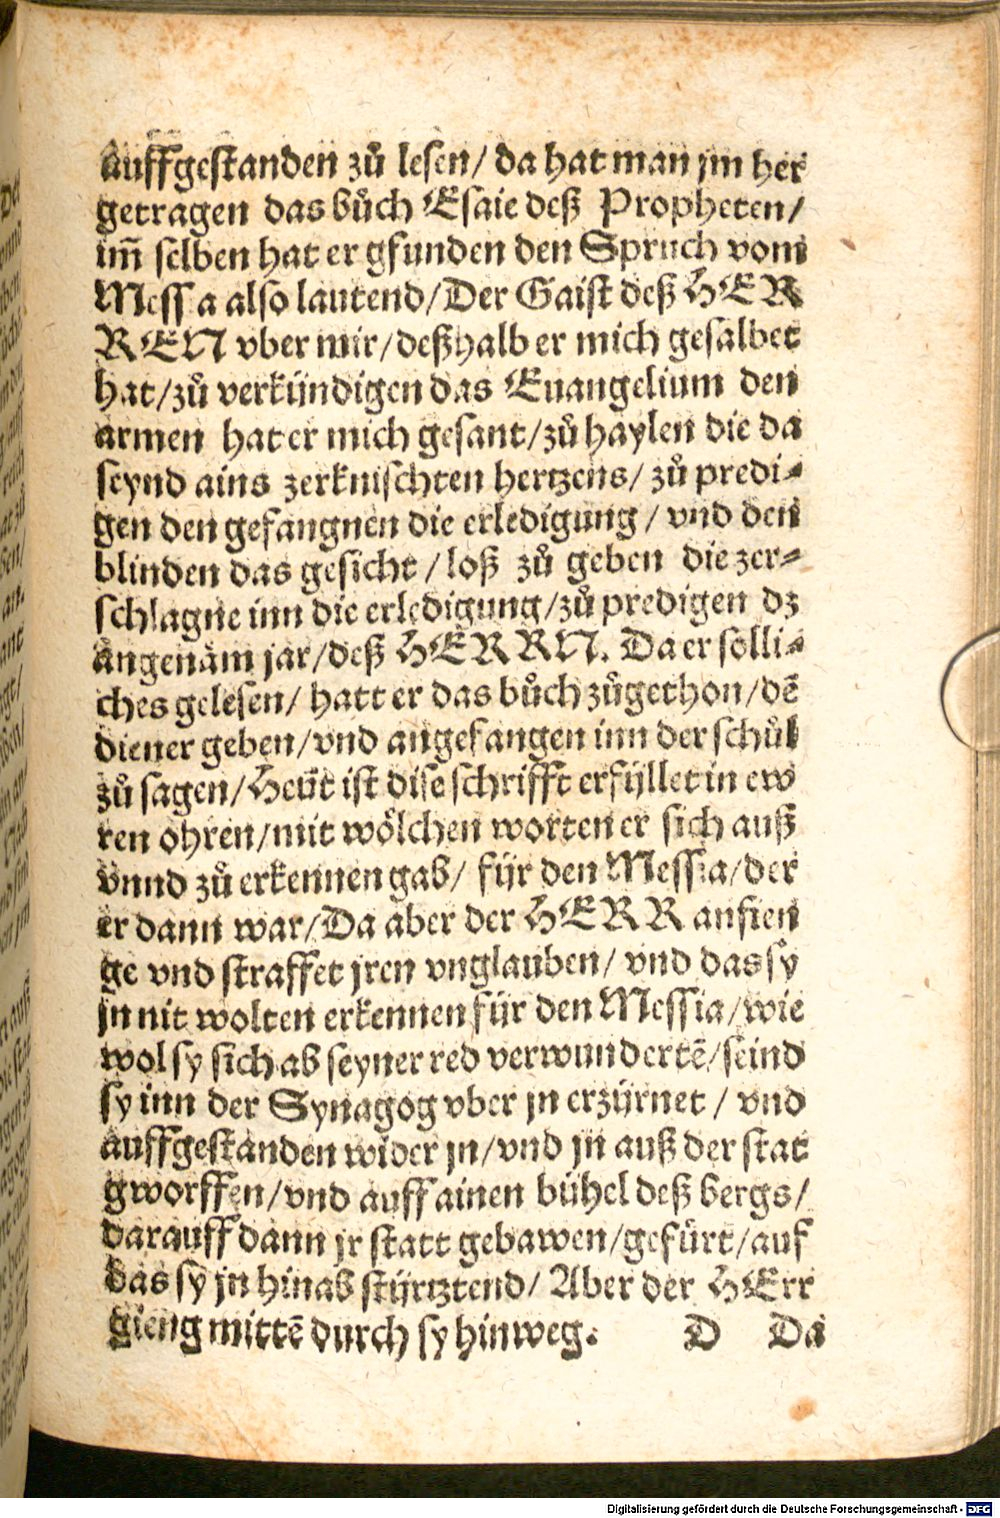 auffgestanden zů lesen/ da hat man jm her
getragen das bůch Esaie deß Propheten/
im̃ selben hat er gfunden den Spruch vom
Messia also lautend/Der Gaist deß HER
REN vber mir/deßhalb er mich gesalbet
hat/zů verkündigen das Euangelium den
armen hat er mich gesant/zů haylen die da
seynd ains zerknischten hertzens/ zů predi-
gen den gefangnen die erledigung / vnd den
blinden das gesicht / loß zů geben die zer-
schlagne inn die erledigung/zů predigen dz
angenäm jar/deß HERRN. Da er solli-
ches gelesen/ hatt er das bůch zůgethon/dē
diener geben/vnd angefangen inn der schůl
zů sagen/Heüt ist dise schrifft erfüllet in ew
ren ohren/mit wölchen worten er sich auß
vnnd zů erkennen gab/ für den Messia/der
er dann war/Da aber der HERR anfien
ge vnd straffet jren vnglauben/ vnd das sy
jn nit wolten erkennen für den Messia/wie
wol sy sich ab seyner red verwundertē/seind
sy inn der Synagog vber jn erzürnet / vnd
auffgestanden wider jn/vnd jn auß der stat
gworffen/vnd auff ainen bühel deß bergs/
darauff dann jr statt gebawen/gefürt/auf
das sy jn hinab stürtztend/ Aber der HErr
gieng mittē durch sy hinweg. D Da
Digitalisierung gefördert durch die Deutsche Forschungsgemeinschaft - DFG